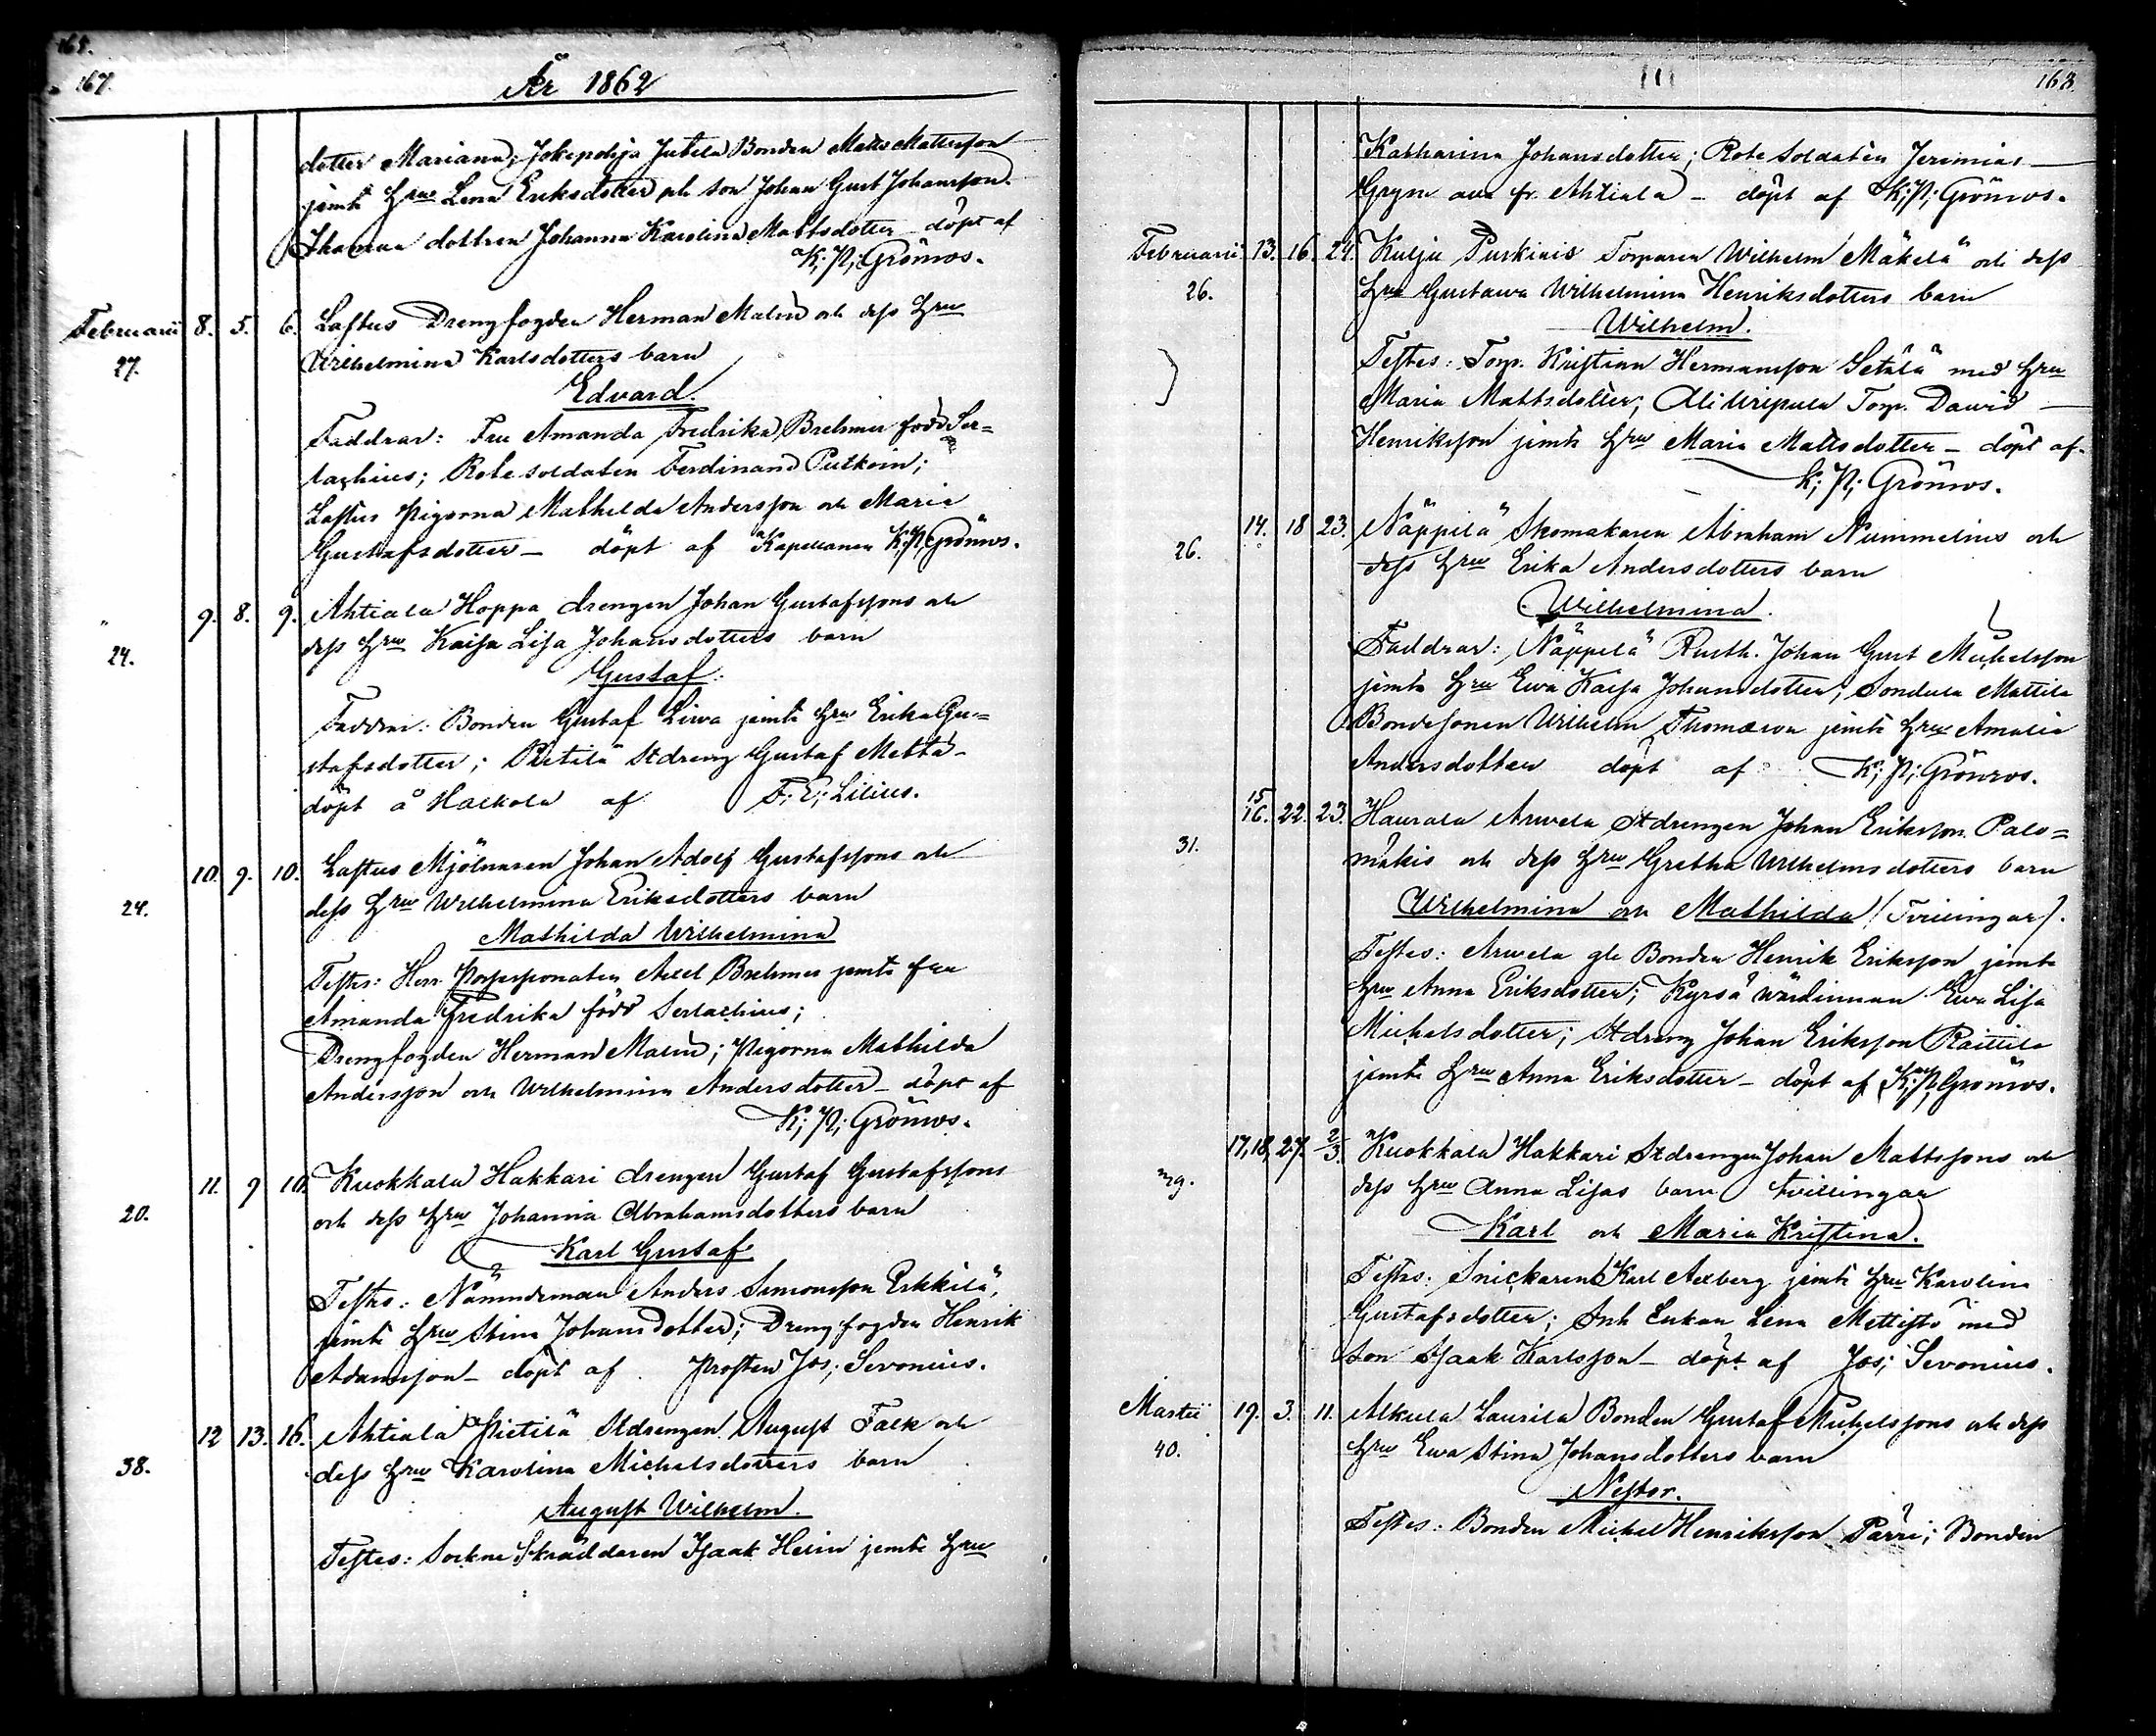 167.
År 1862
dotter Mariana; Jokipohja Jutila Bonden Matts Mattsson
jemte Hru Lena Eriksdotter och son Johan Gust Johansson.
dottren Johanna Karolina Mattsdotter döpt af
K; P; Grönros.
Februarii 8. 5. 6. Laftus Drengfogden Herman Malm och dess Hru
27. Wilhelmina Karlsdotters barn
Edvard.
Faddrar: Fru Amanda Fredrika Brehmer född Ser=
lachius; Rote soldaten Ferdinand Putkoin;
Laftus Pigorna Mathilda Andersson och Maria
Gustafsdotter – döpt af Kapellanen K; P; Grönros.
" 9. 8. 9. Ahtiala Hoppa drengen Johan Gustafssons och
24. dess Hru Kaisa Lisa Johansdotters barn
Gustaf.
Faddrar: Bonden Gustaf Liwa jemte Hru Erika Gu=
stafsdotter; Pietilä Stdreng Gustaf Mettä –
döpt å Halkola af F; E; Lilius.
10. 9. 10. Laftus Mjölnaren Johan Adolf Gustafssons och
24. dess Hru Wilhelmina Eriksdotters barn
Mathilda Wilhelmina
Testes: Herr Possessionaten Axel Brehmer jemte fru
Amanda Fredrika född Serlachius;
Drengfogden Herman Malm; Pigorna Mathilda
Andersson och Wilhelmina Andersdotter – döpt af
K; P; Grönros.
11. 9 10. Kuokkala Hakkari drengen Gustaf Gustafssons
20. och dess Hru Johanna Abrahamsdotters barn
Karl Gustaf
Testes: Nämndeman Anders Simonsson Erkkilä,
jemte Hru Stina Johansdotter; Drengfogden Henrik
Adamsson – döpt af Prosten Jos; Sevonius.
12 13. 16. Ahtiala Pietilä Stdrengen August Falk och
38. dess Hru Karolina Michelsdotters barn
August Wilhelm.
Testes: Sockne Skräddaren Isaak Helin jemte Hru
163.
Katharina Johansdotter; Rote soldaten Jeremias –
Grym fr. Ahtiala – döpt af K; P; Grönros.
Februarii 13. 16. 24. Kulju Purkinis Torparen Wilhelm Mäkelä och dess
26. Hru Gustawa Wilhelmina Henriksdotters barn
Wilhelm.
Testes: Torp. Kristian Hermansson Setälä med Hru
Maria Mattsdotter; Torp. David –
Henriksson jemte Hru Maria Mattsdotter – döpt af
K; P; Grönros.
14. 18 23. Näppilä Skomakaren Abraham Nummelius och
26. dess Hru Erika Andersdotters barn
Wilhelmina.
Faddrar: Näppilä Rusth. Johan Gust Michelsson
jemte Hru Ewa Kaisa Johansdotter; Sondula Mattila
Bondesonen Wilhelm jemte Hru Amalia
Andersdotter döpt af K; P; Grönros.
15
16. 22. 23. Haurala Arwela Stdrengen Johan Eriksson Palo=
31. mäkis och dess Hru Gretha Wilhelmsdotters barn
Wilhelmina och Mathilda (Tvillingar).
Testes: Arwela gle Bonden Henrik Eriksson jemte
Hru Anna Eriksdotter; Kyrsä wärdinnan Ewa Lisa
Michelsdotter; Stdreng Johan Eriksson Raittila
jemte Hru Anna Eriksdotter – döpt af K; P; Grönros.
17, 18, 27. 2/3. Kuokkala Hakkari Stdrengen Johan Mattssons och
29. dess Hru Anna Lisas barn tvillingar
Karl och Maria Kristina.
Testes: Snickaren Karl Axberg jemte Hru Karolina
Gustafsdotter; Inh Enkan Lena Mettistö med
Son Isaak Karlsson – döpt af Jos; Sevonius.
Martii 19. 3. 11. Alkula Laurila Bonden Gustaf Michelssons och dess
40. Hru Ewa Stina Johansdotters barn
Nestor.
Testes: Bonden Michel Henriksson Pärri; Bonden